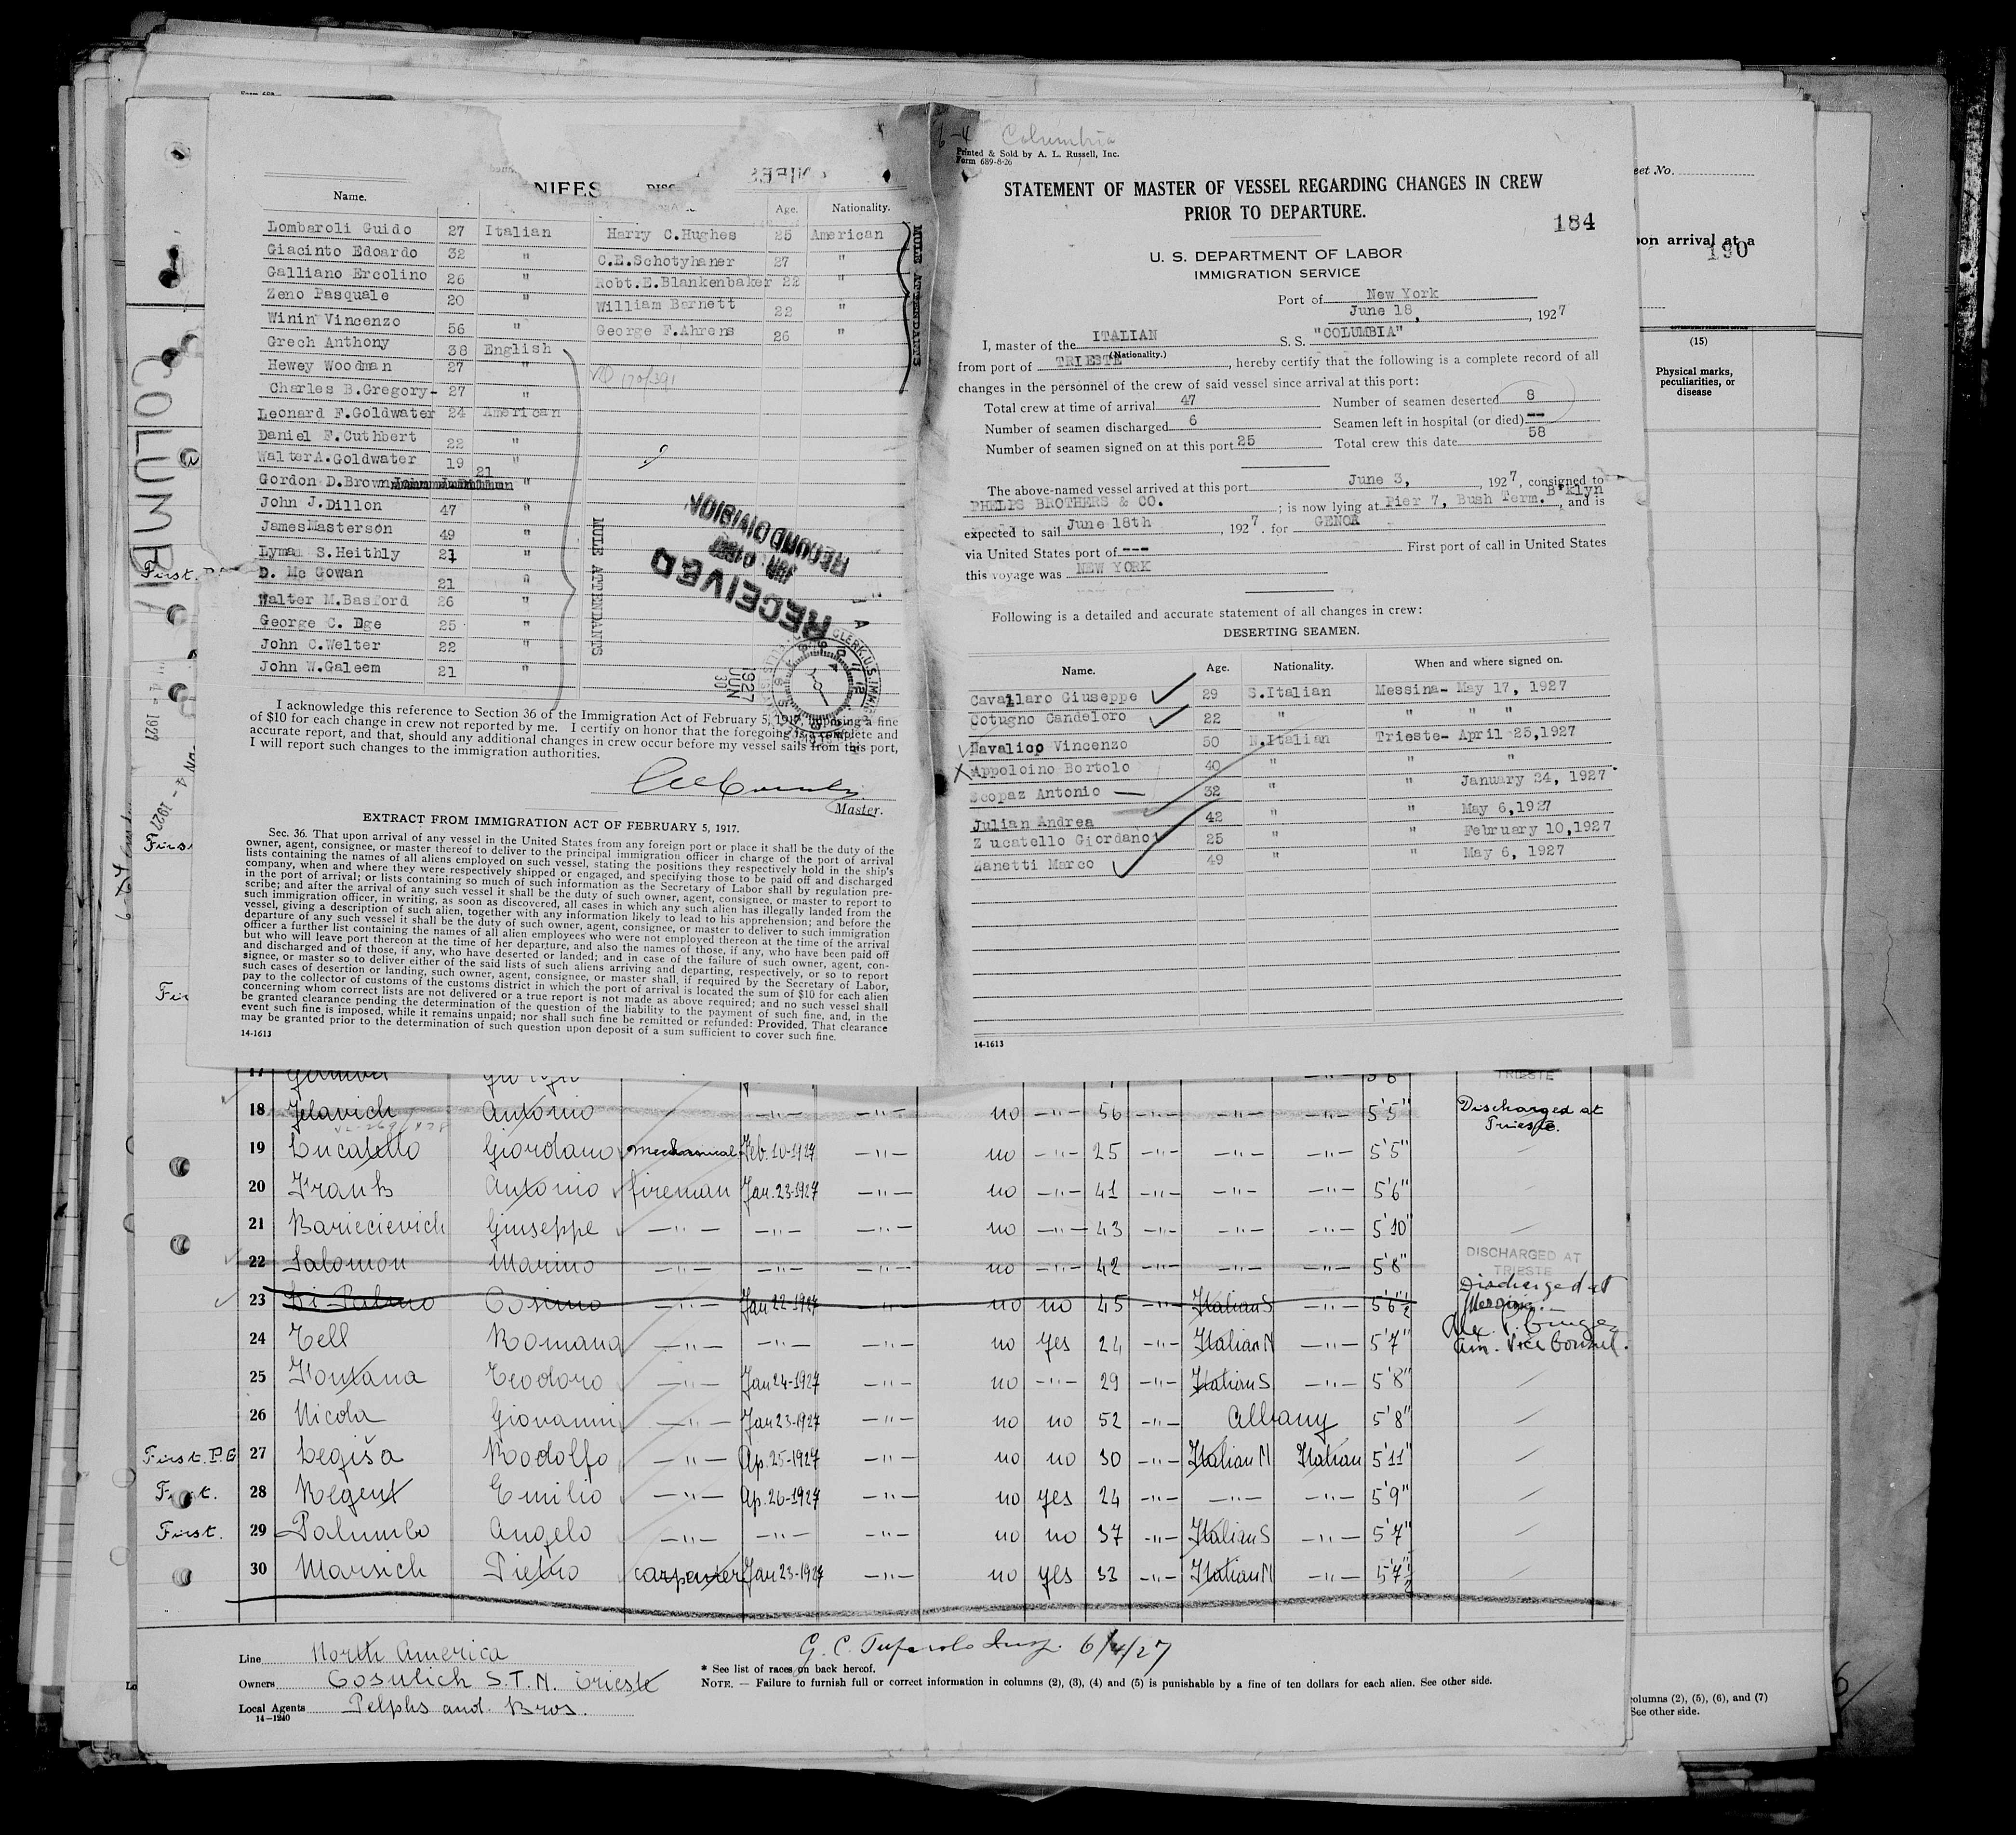 Name. Age. Nationality.
Lombaroli Guido 27 Italian Harry C.Hughes 25 American
Giacinto Edoardo 32 " C.E.Schotyhaner 27 "
Galliano Ercolino 26 " Robt.E.Blankenbaker 22 "
Zeno Pasquale 20 " William Barnett 22 "
Winin Vincenzo 56 " George F.Ahrens 26 "
Grech Anthony 38 English
Hewey Woodman 27 "
Charles B.Gregory- 27 "
Leonard F.Goldwater 24 American
Daniel F.Cuthbert 22 "
Walter A.Goldwater 19 "
Gordon D.Brown 21 "
John J.Dillon 47 "
James Masterson 49 "
Lyman S.Heithly 21 "
D. Mc Gowan 21 "
Walter M.Basford 26 "
George C. Dge 25 "
John C.Welter 22 "
John W.Galeem 21 "
MULE ATTENDANTS
MULE ATTENDANTS
RECEIVED
RECORD DIVISION
1927
JUN
30
I acknowledge this reference to Section 36 of the Immigration Act of February 5, 1917, imposing a fine
of $10 for each change in crew not reported by me. I certify on honor that the foregoing is a complete and
accurate report, and that, should any additional changes in crew occur before my vessel sails from this port,
I will report such changes to the immigration authorities.
Master.
EXTRACT FROM IMMIGRATION ACT OF FEBRUARY 5, 1917.
Sec. 36. That upon arrival of any vessel in the United States from any foreign port or place it shall be the duty of the
owner, agent, consignee, or master thereof to deliver to the principal immigration officer in charge of the port of arrival
lists containing the names of all aliens employed on such vessel, stating the positions they respectively hold in the ship's
company, when and where they were respectively shipped or engaged, and specifying those to be paid off and discharged
in the port of arrival; or lists containing so much of such information as the Secretary of Labor shall by regulation pre-
scribe; and after the arrival of any such vessel it shall be the duty of such owner, agent, consignee, or master to report to
such immigration officer, in writing, as soon as discovered, all cases in which any such alien has illegally landed from the
vessel, giving a description of such alien, together with any information likely to lead to his apprehension; and before the
departure of any such vessel it shall be the duty of such owner, agent, consignee, or master to deliver to such immigration
officer a further list containing the names of all alien employees who were not employed thereon at the time of the arrival
but who will leave port thereon at the time of her departure, and also the names of those, if any, who have been paid off
and discharged and of those, if any, who have deserted or landed; and in case of the failure of such owner, agent, con-
signee, or master so to deliver either of the said lists of such aliens arriving and departing, respectively, or so to report
such cases of desertion or landing, such owner, agent, consignee, or master shall, if required by the Secretary of Labor,
pay to the collector of customs of the customs district in which the port of arrival is located the sum of $10 for each alien
concerning whom correct lists are not delivered or a true report is not made as above required; and no such vessel shall
be granted clearance pending the determination of the question of the liability to the payment of such fine, and, in the
event such fine is imposed, while it remains unpaid; nor shall such fine be remitted or refunded: Provided, That clearance
may be granted prior to the determination of such question upon deposit of a sum sufficient to cover such fine.
14-1613
6-4 Columbia
Printed & Sold by A. L. Russell, Inc.
Form 689-8-26
STATEMENT OF MASTER OF VESSEL REGARDING CHANGES IN CREW
PRIOR TO DEPARTURE.
184
U. S. DEPARTMENT OF LABOR
IMMIGRATION SERVICE
Port of New York
June 18, 1927
I, master of the ITALIAN S. S. "COLUMBIA"
(Nationality.)
from port of TRIESTE, hereby certify that the following is a complete record of all
changes in the personnel of the crew of said vessel since arrival at this port:
Total crew at time of arrival 47 Number of seamen deserted 8
Number of seamen discharged 6 Seamen left in hospital (or died) --
Number of seamen signed on at this port 25 Total crew this date 58
The above-named vessel arrived at this port June 3, 1927, consigned to
PHELPS BROTHERS & CO. ; is now lying at Pier 7, Bush Term. B'klyn, and is
expected to sail June 18th, 1927. for GENOA
via United States port of --- First port of call in United States
this voyage was NEW YORK
Following is a detailed and accurate statement of all changes in crew:
DESERTING SEAMEN.
Name. Age. Nationality. When and where signed on.
Cavallaro Giuseppe 29 S.Italian Messina- May 17, 1927
Cotugno Candeloro 22 " " " "
Navalico Vincenzo 50 N.Italian Trieste- April 25,1927
Appoloino Bortolo 40 " " "
Scopaz Antonio 32 " " January 24, 1927
Julian Andrea 42 " " May 6,1927
Zucatello Giordano 25 " " February 10,1927
Zanetti Marco 49 " " May 6, 1927
14-1613
eet No.
pon arrival at a
190
(15)
Physical marks,
peculiarities, or
disease
COLUMBIA
First.
17 5'6" TRIESTE
18 Jelavich Antonio —"— —"— no —"— 56 —"— —"— —"— 5'5" Discharged at Trieste.
19 Zucatello Giordano mechanical Feb.10-1927 —"— no —"— 25 —"— —"— —"— 5'5"
20 Frank Antonio fireman Jan.23-1927 —"— no —"— 41 —"— —"— —"— 5'6"
21 Bariecievich Giuseppe —"— —"— —"— no —"— 43 —"— —"— —"— 5'10"
22 Salomon Marino —"— —"— —"— no —"— 42 —"— —"— —"— 5'8" DISCHARGED AT TRIESTE
23 Di Palmo Cosimo —"— Jan 22-1927 —"— no no 45 —"— Italian S —"— 5'6"½ Discharged at Messina.
24 Tell Romano —"— —"— —"— no yes 24 —"— Italian N —"— 5'7" Am. Vice Consul.
25 Fontana Teodoro —"— Jan 24-1927 —"— no —"— 29 —"— Italian S —"— 5'8"
26 Nicola Giovanni —"— Jan 23-1927 —"— no no 52 —"— Albany 5'8"
First. P.G 27 Legiša Rodolfo —"— Ap.25-1927 —"— no no 30 —"— Italian N Italian 5'11"
First. 28 Regent Emilio —"— Ap.26-1927 —"— no yes 24 —"— —"— —"— 5'9"
First. 29 Palumbo Angelo —"— —"— —"— no no 37 —"— Italian S —"— 5'7"
30 Marsich Pietro carpenter Jan 23-1927 —"— no yes 33 —"— Italian N —"— 5'7"½
Line North America
Owners Cosulich S.T.N. Trieste
Local Agents Pelphs and Bros.
14-1240
6/4/27
* See list of races on back hereof.
NOTE. — Failure to furnish full or correct information in columns (2), (3), (4) and (5) is punishable by a fine of ten dollars for each alien. See other side.
columns (2), (5), (6), and (7)
See other side.